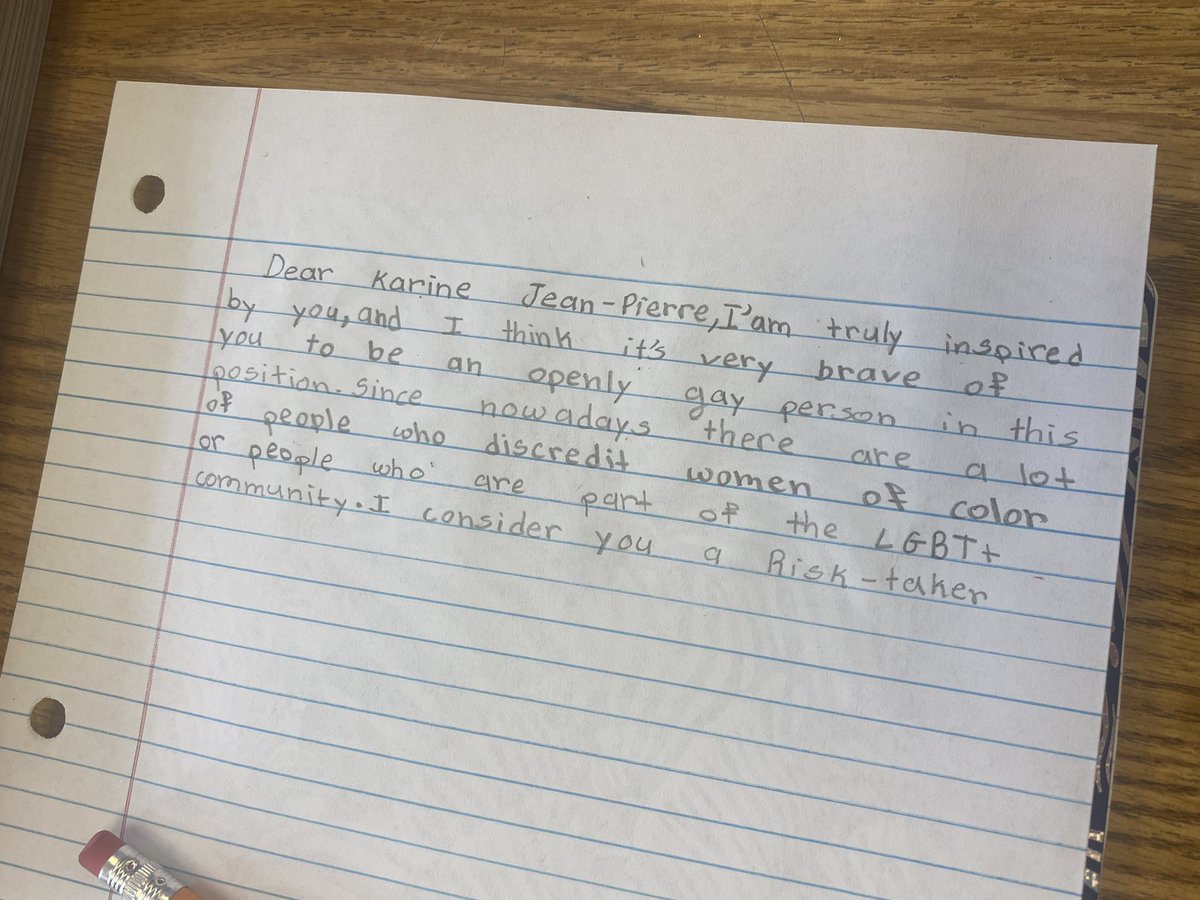 Dear Karine Jean-Pierre, I'am truly inspired
by you, and I think it's very brave of
you to be an openly gay person in this
position. Since nowadays there are a lot
of people who discredit women of color
or people who are part of the LGBT+
community. I consider you a Risk-taker